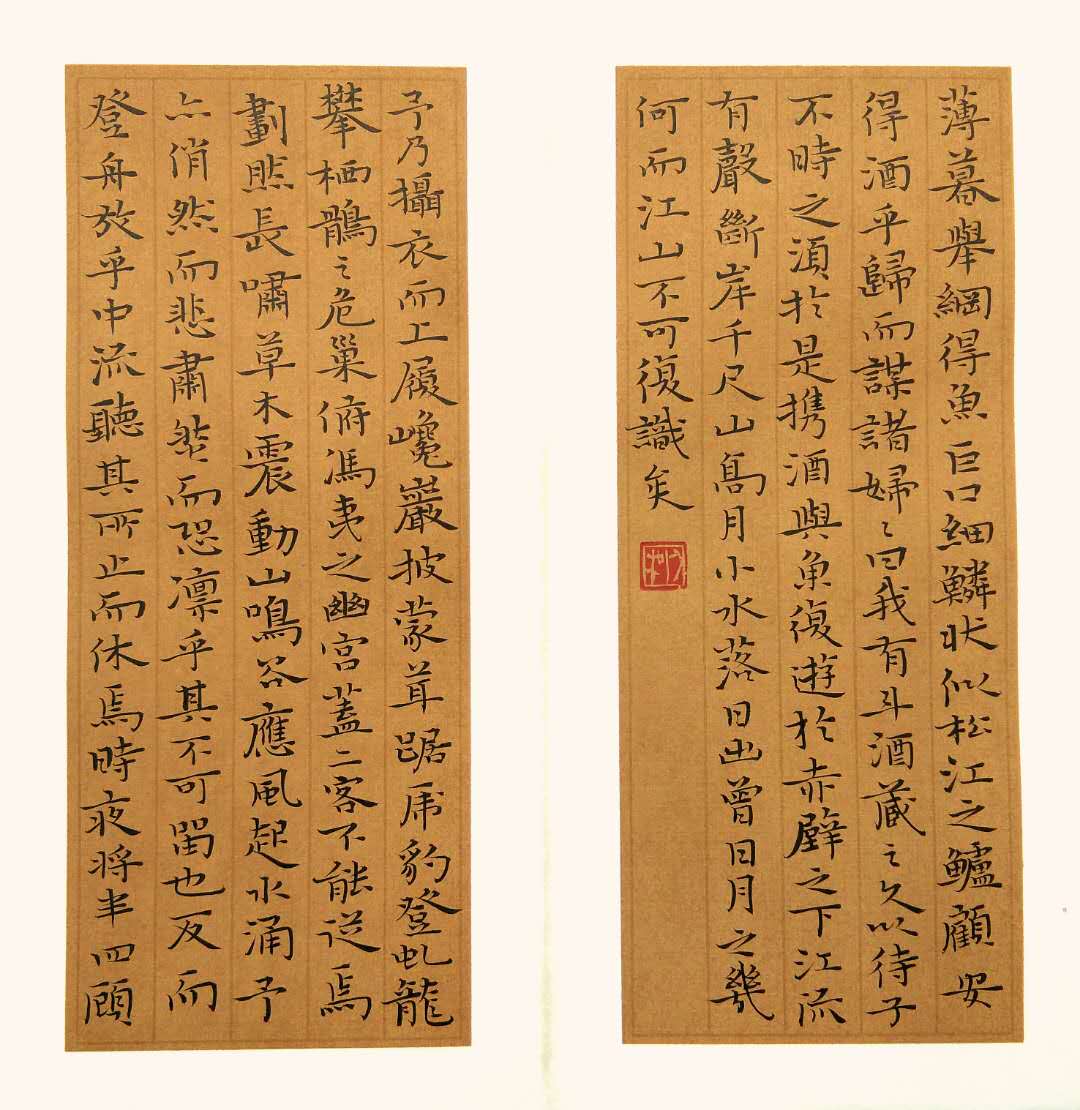 薄暮舉網得魚巨口細鱗狀似松江之鱸顧安
得酒乎歸而謀諸婦〻曰我有斗酒藏之久以待子
不時之須於是携酒與魚復遊於赤壁之下江流
有聲斷岸千尺山高月小水落日出曾日月之幾
何而江山不可復識矣
予乃攝衣而上履巉巖披蒙茸踞虎豹登虬龍
攀栖鶻之危巢俯馮夷之幽宮蓋二客不能從焉
劃然長嘯草木震動山鳴谷應風起水涌予
亦悄然而悲肅然而恐凛乎其不可留也反而
登舟放乎中流聽其所止而休焉時夜將半四顧